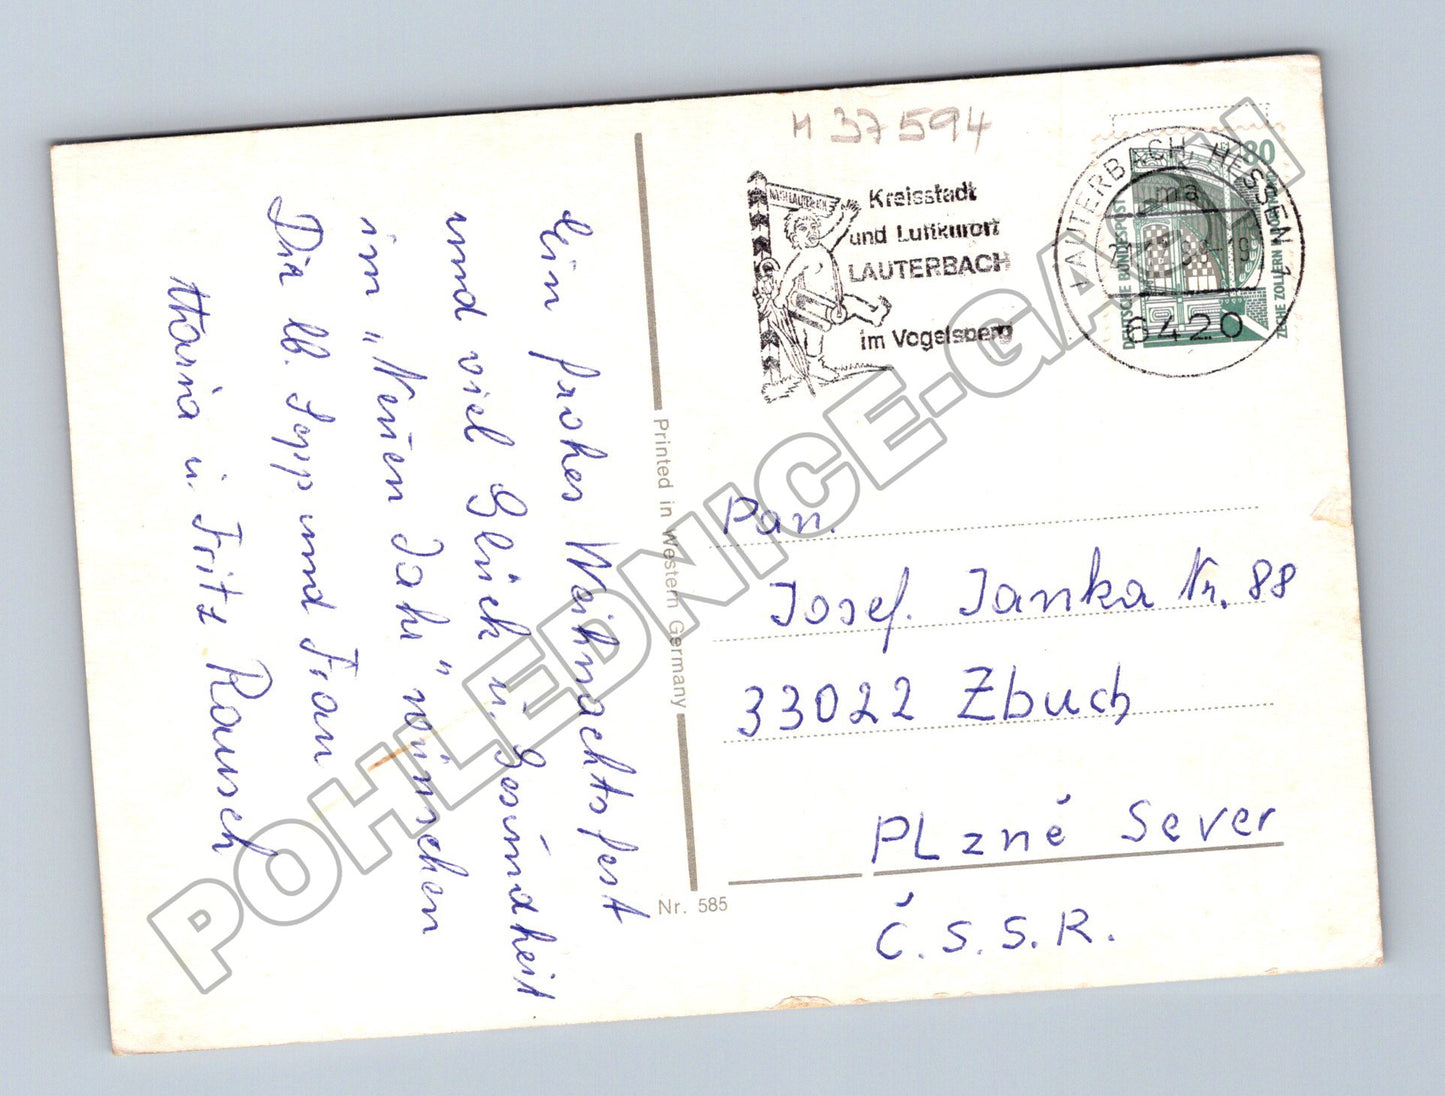 Ein frohes Weihnachtsfest
und viel Glück u. Gesundheit
im „Neuen Jahr" wünschen
Dir lb. Sepp und Frau
Maria u. Fritz Rausch
Printed in Western Germany
Nr. 585
M 37594
Kreisstadt
und Luftkurort
LAUTERBACH
im Vogelsberg
LAUTERBACH, HESSEN 1
ma
6420
80
DEUTSCHE BUNDESPOST
ZECHE ZOLLERN II
Pan.
Josef. Janka Nr. 88
33022 Zbuch
PLzné Sever
Č.S.S.R.
POHLEDNICE-GACH